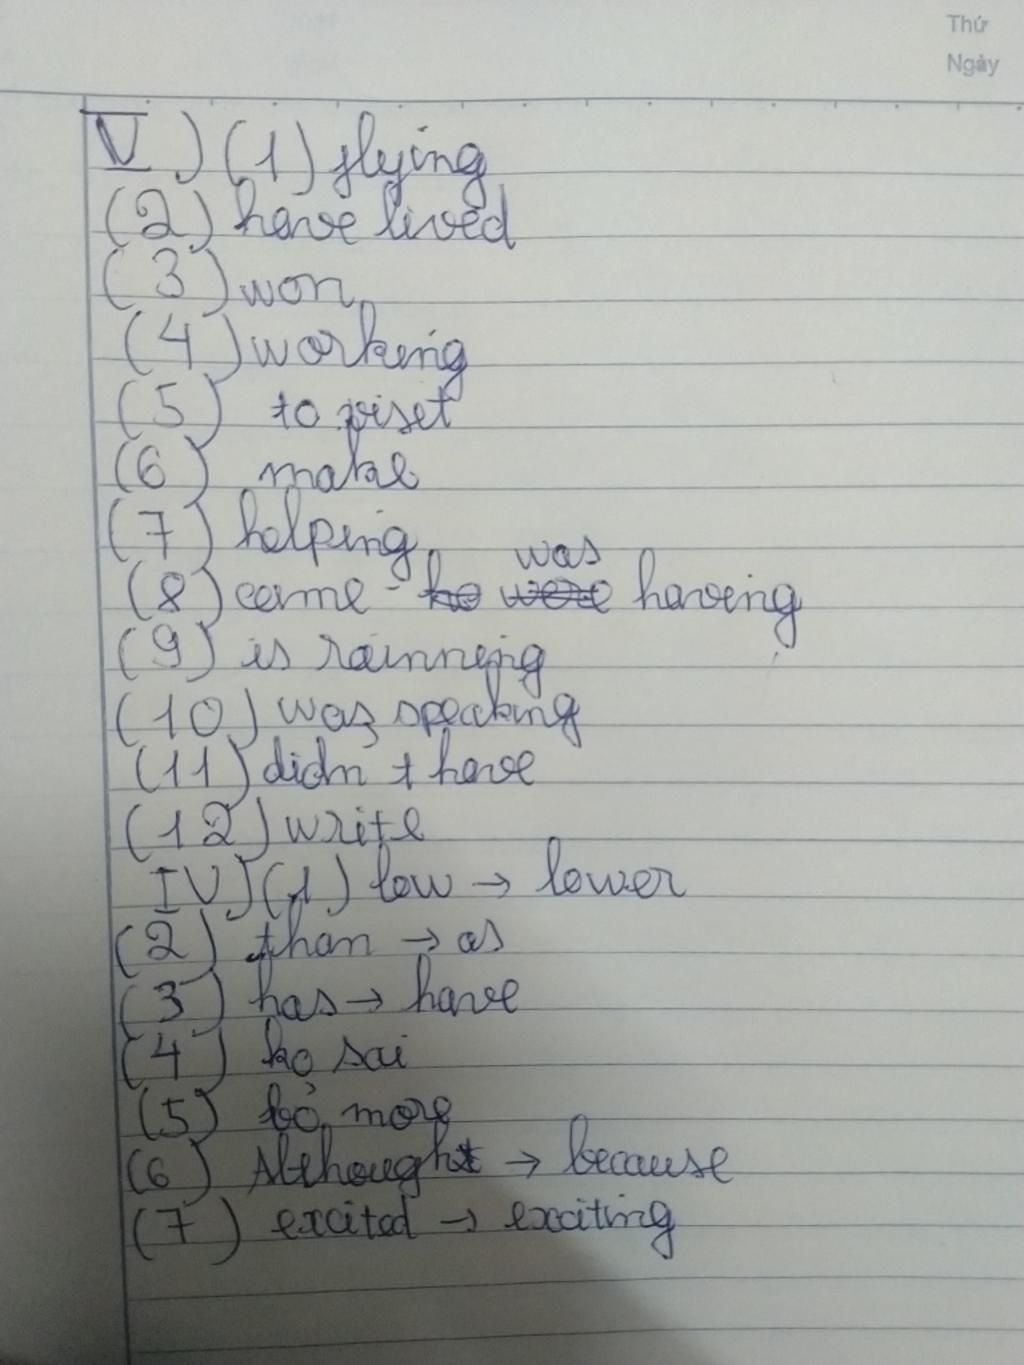 Thứ
Ngày
V) (1) flying
(2) have lived
(3) won
(4) working
(5) to viset
(6) make
(7) helping
(8) came - was having
(9) is rainning
(10) was speaking
(11) didn't have
(12) write
IV) (1) low → lower
(2) than → as
(3) has → have
(4) ko sai
(5) bỏ more
(6) Although → because
(7) excited → exciting